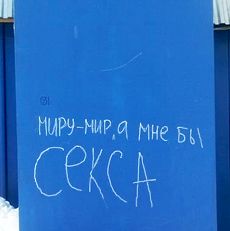 МИРУ-МИР, А МНЕ БЫ
СЕКСА